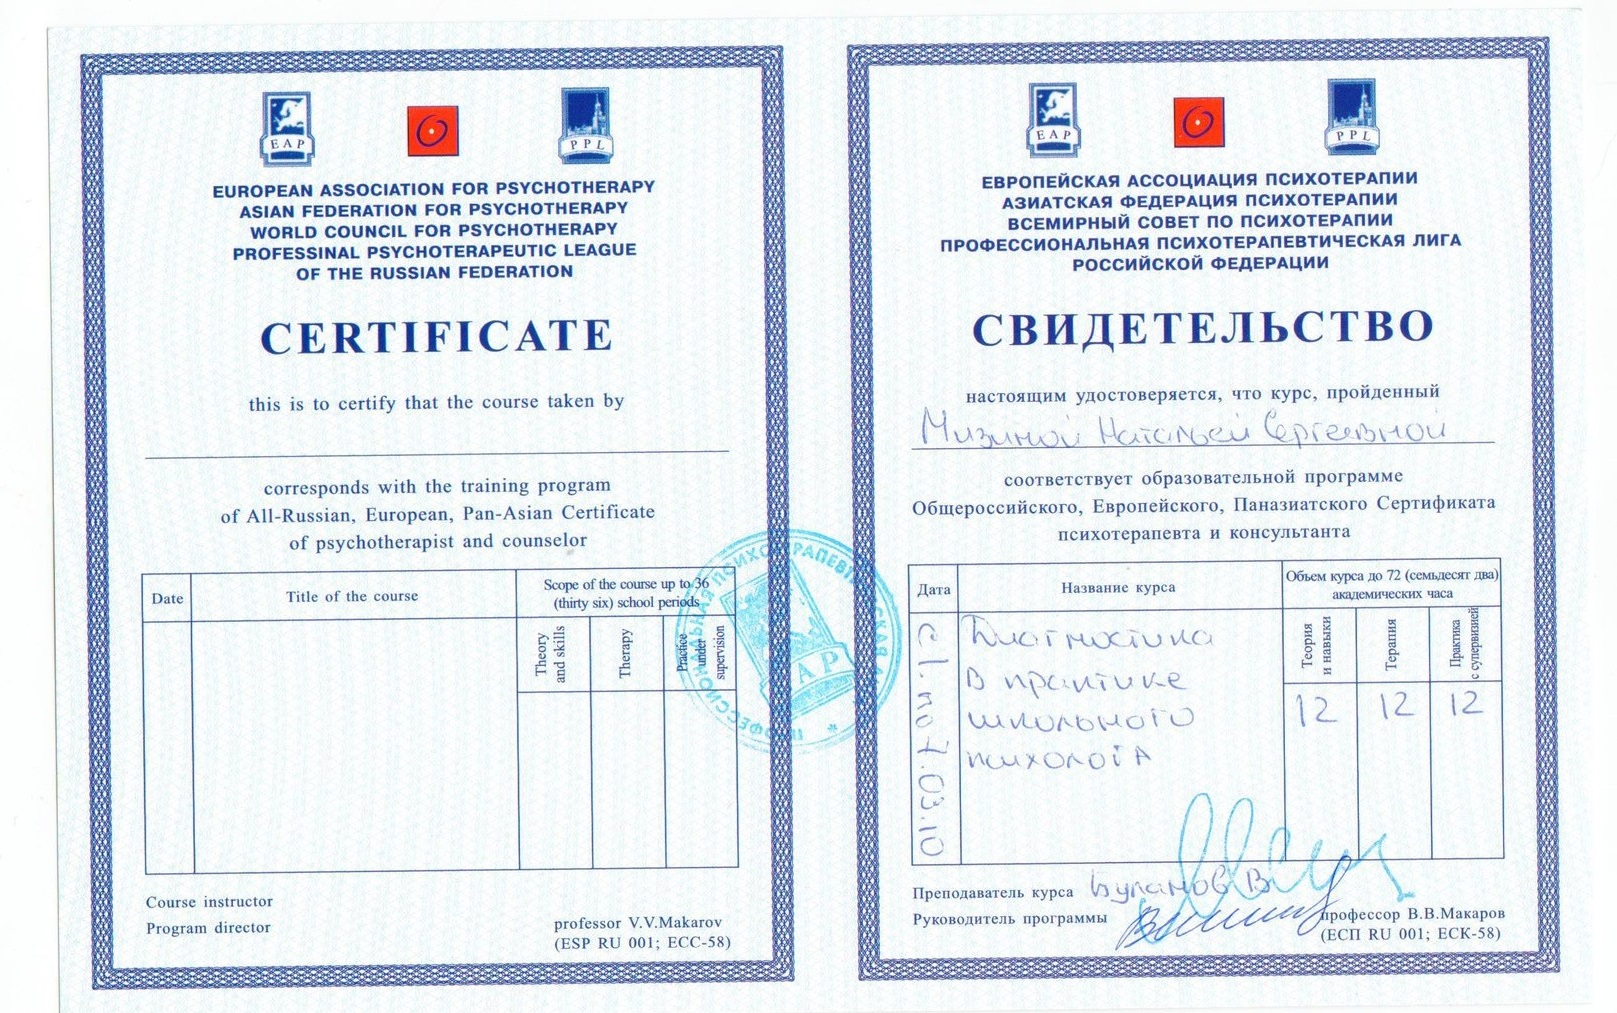 EAP
PPL
EUROPEAN ASSOCIATION FOR PSYCHOTHERAPY
ASIAN FEDERATION FOR PSYCHOTHERAPY
WORLD COUNCIL FOR PSYCHOTHERAPY
PROFESSINAL PSYCHOTERAPEUTIC LEAGUE
OF THE RUSSIAN FEDERATION
CERTIFICATE
this is to certify that the course taken by
corresponds with the training program
of All-Russian, European, Pan-Asian Certificate
of psychotherapist and counselor
Date
Title of the course
Scope of the course up to 36
(thirty six) school periods
Theory
and skills
Therapy
Practice
under
supervision
Course instructor
Program director
professor V.V.Makarov
(ESP RU 001; ECC-58)
EAP
PPL
ЕВРОПЕЙСКАЯ АССОЦИАЦИЯ ПСИХОТЕРАПИИ
АЗИАТСКАЯ ФЕДЕРАЦИЯ ПСИХОТЕРАПИИ
ВСЕМИРНЫЙ СОВЕТ ПО ПСИХОТЕРАПИИ
ПРОФЕССИОНАЛЬНАЯ ПСИХОТЕРАПЕВТИЧЕСКАЯ ЛИГА
РОССИЙСКОЙ ФЕДЕРАЦИИ
СВИДЕТЕЛЬСТВО
настоящим удостоверяется, что курс, пройденный
Мизиной Натальей Сергеевной
соответствует образовательной программе
Общероссийского, Европейского, Паназиатского Сертификата
психотерапевта и консультанта
Дата
Название курса
Объем курса до 72 (семьдесят два)
академических часа
Теория
и навыки
Терапия
Практика
с супервизией
с 1. по 7.03.10
Диагностика
в практике
школьного
психолога
12
12
12
Преподаватель курса Буланов В
Руководитель программы
профессор В.В.Макаров
(ЕСП RU 001; ЕСК-58)